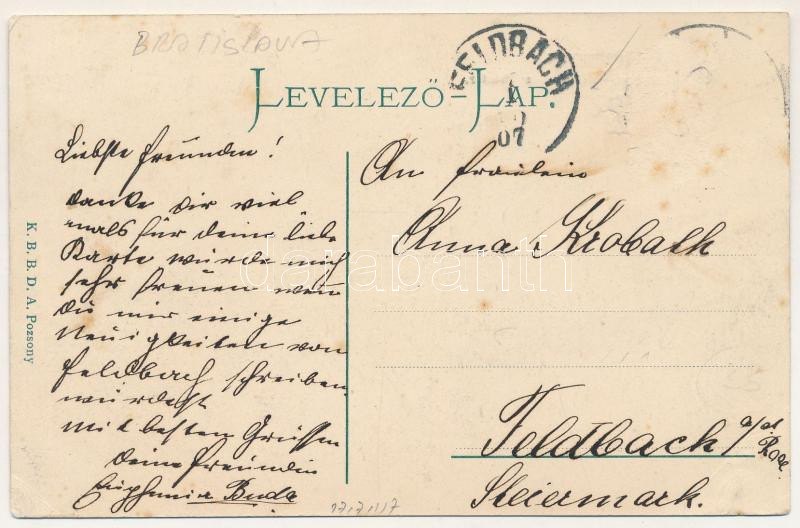 BRATISLAVA
FELDBACH
07
LEVELEZŐ-LAP.
Liebste Freundin!
danke dir viel
mals für deine liebe
Karte würde mich
sehr freuen wen
du mir einige
Neuigkeiten von
Feldbach schreiben
würdest
mit besten Grüssen
deine Freundin
Euphemia Buda
An Fräulein
Anna Krobath
Feldbach a/d
Steiermark.
K. B. B. D. A. Pozsony
darabanth